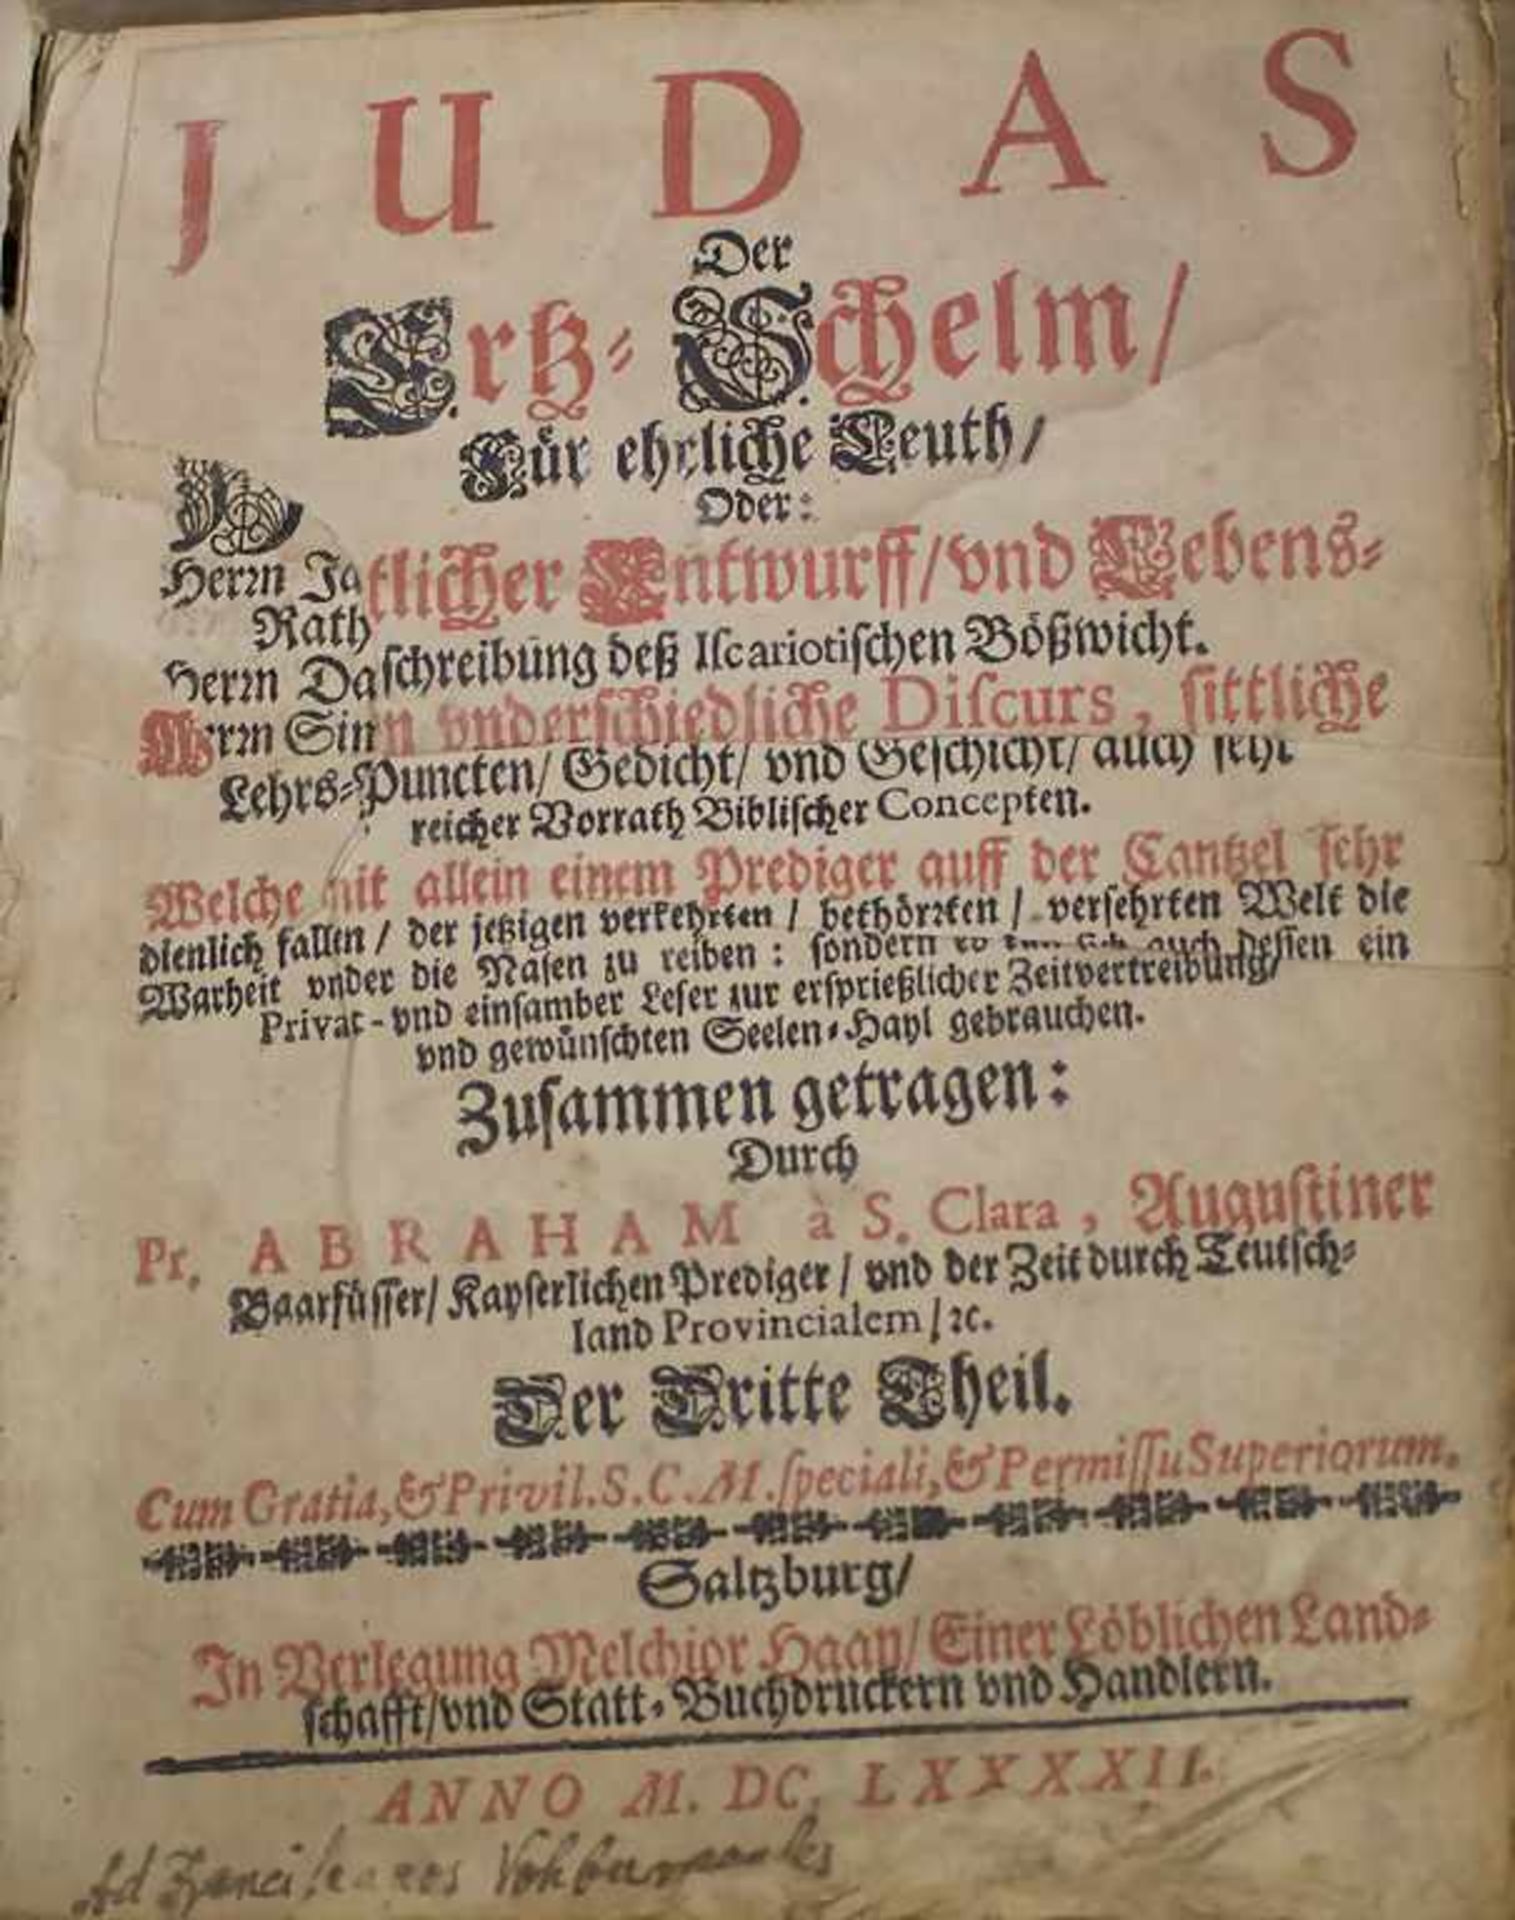 JUDAS
Der
Ertz-Schelm/
Für ehrliche Leuth/
Oder:
Herrn Ja tlicher Entwurff/vnd Lebens-
Rath
Herrn Da schreibung deß Iscariotischen Bößwicht.
Sin n vnderschiedliche Discurs, sittliche
Lehrs-Puncten/ Gedicht/ vnd Geschicht/ auch sehr
reicher Vorrath Biblischer Concepten.
Welche nit allein einem Prediger auff der Cantzel sehr
dienlich fallen / der jetzigen verkehrten / bethörzten / versehrten Welt die
Warheit vnder die Nasen zu reiben : sondern es auch dessen ein
Privat-vnd einsamber Leser zur ersprießlicher Zeitvertreibung/
vnd gewünschten Seelen-Hayl gebrauchen.
Zusammen getragen:
Durch
Pr. ABRAHAM à S. Clara, Augustiner
Baarfüsser/ Kayserlichen Prediger / vnd der Zeit durch Teutsch-
land Provincialem / ꝛc.
Der Dritte Theil.
Cum Gratia, & Privil. S. C. M. speciali, & Permissu Superiorum.
Saltzburg/
In Verlegung Melchior Haan/ Einer Löblichen Land-
schafft/vnd Statt-Buchdruckern vnd Handlern.
ANNO M. DC. LXXXXII.
Ad Franciscanos